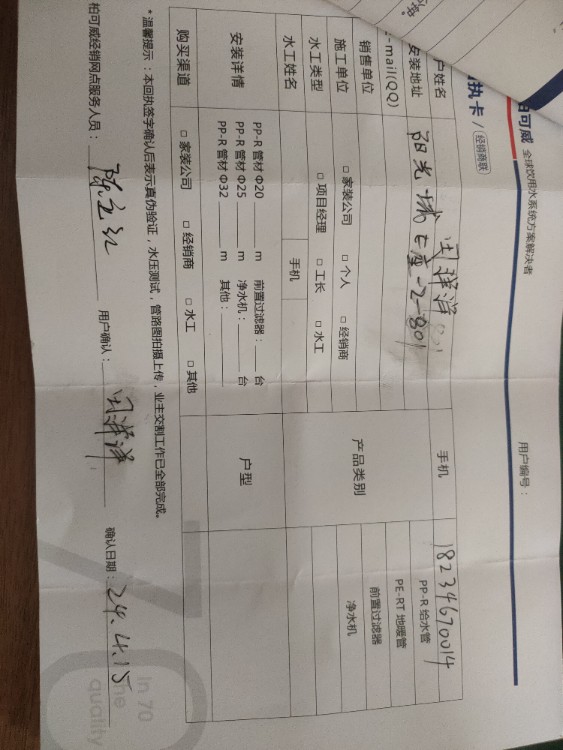 柏可威 全球饮用水系统方案解决者
用户编号：
回执卡 / 经销商联
户姓名 闫洋洋 手机 18234670014
安装地址 阳光城七座-2-801
E-mail(QQ)
销售单位
施工单位 □ 家装公司 □ 个人 □ 经销商
水工类型 □ 项目经理 □ 工长 □ 水工
水工姓名 手机
产品类别
PP-R 给水管
PE-RT 地暖管
前置过滤器
净水机
安装详情
PP-R 管材 Φ20 ____ m 前置过滤器：____ 台
PP-R 管材 Φ25 ____ m 净水机：____ 台
PP-R 管材 Φ32 ____ m 其他：____
户型
购买渠道 □ 家装公司 □ 经销商 □ 水工 □ 其他
*温馨提示：本回执签字确认后表示真伪验证，水压测试，管路图拍摄上传，业主交割工作已全部完成。
柏可威经销网点服务人员： 用户确认：闫洋洋 确认日期：24.4.15
In 70
the
quality